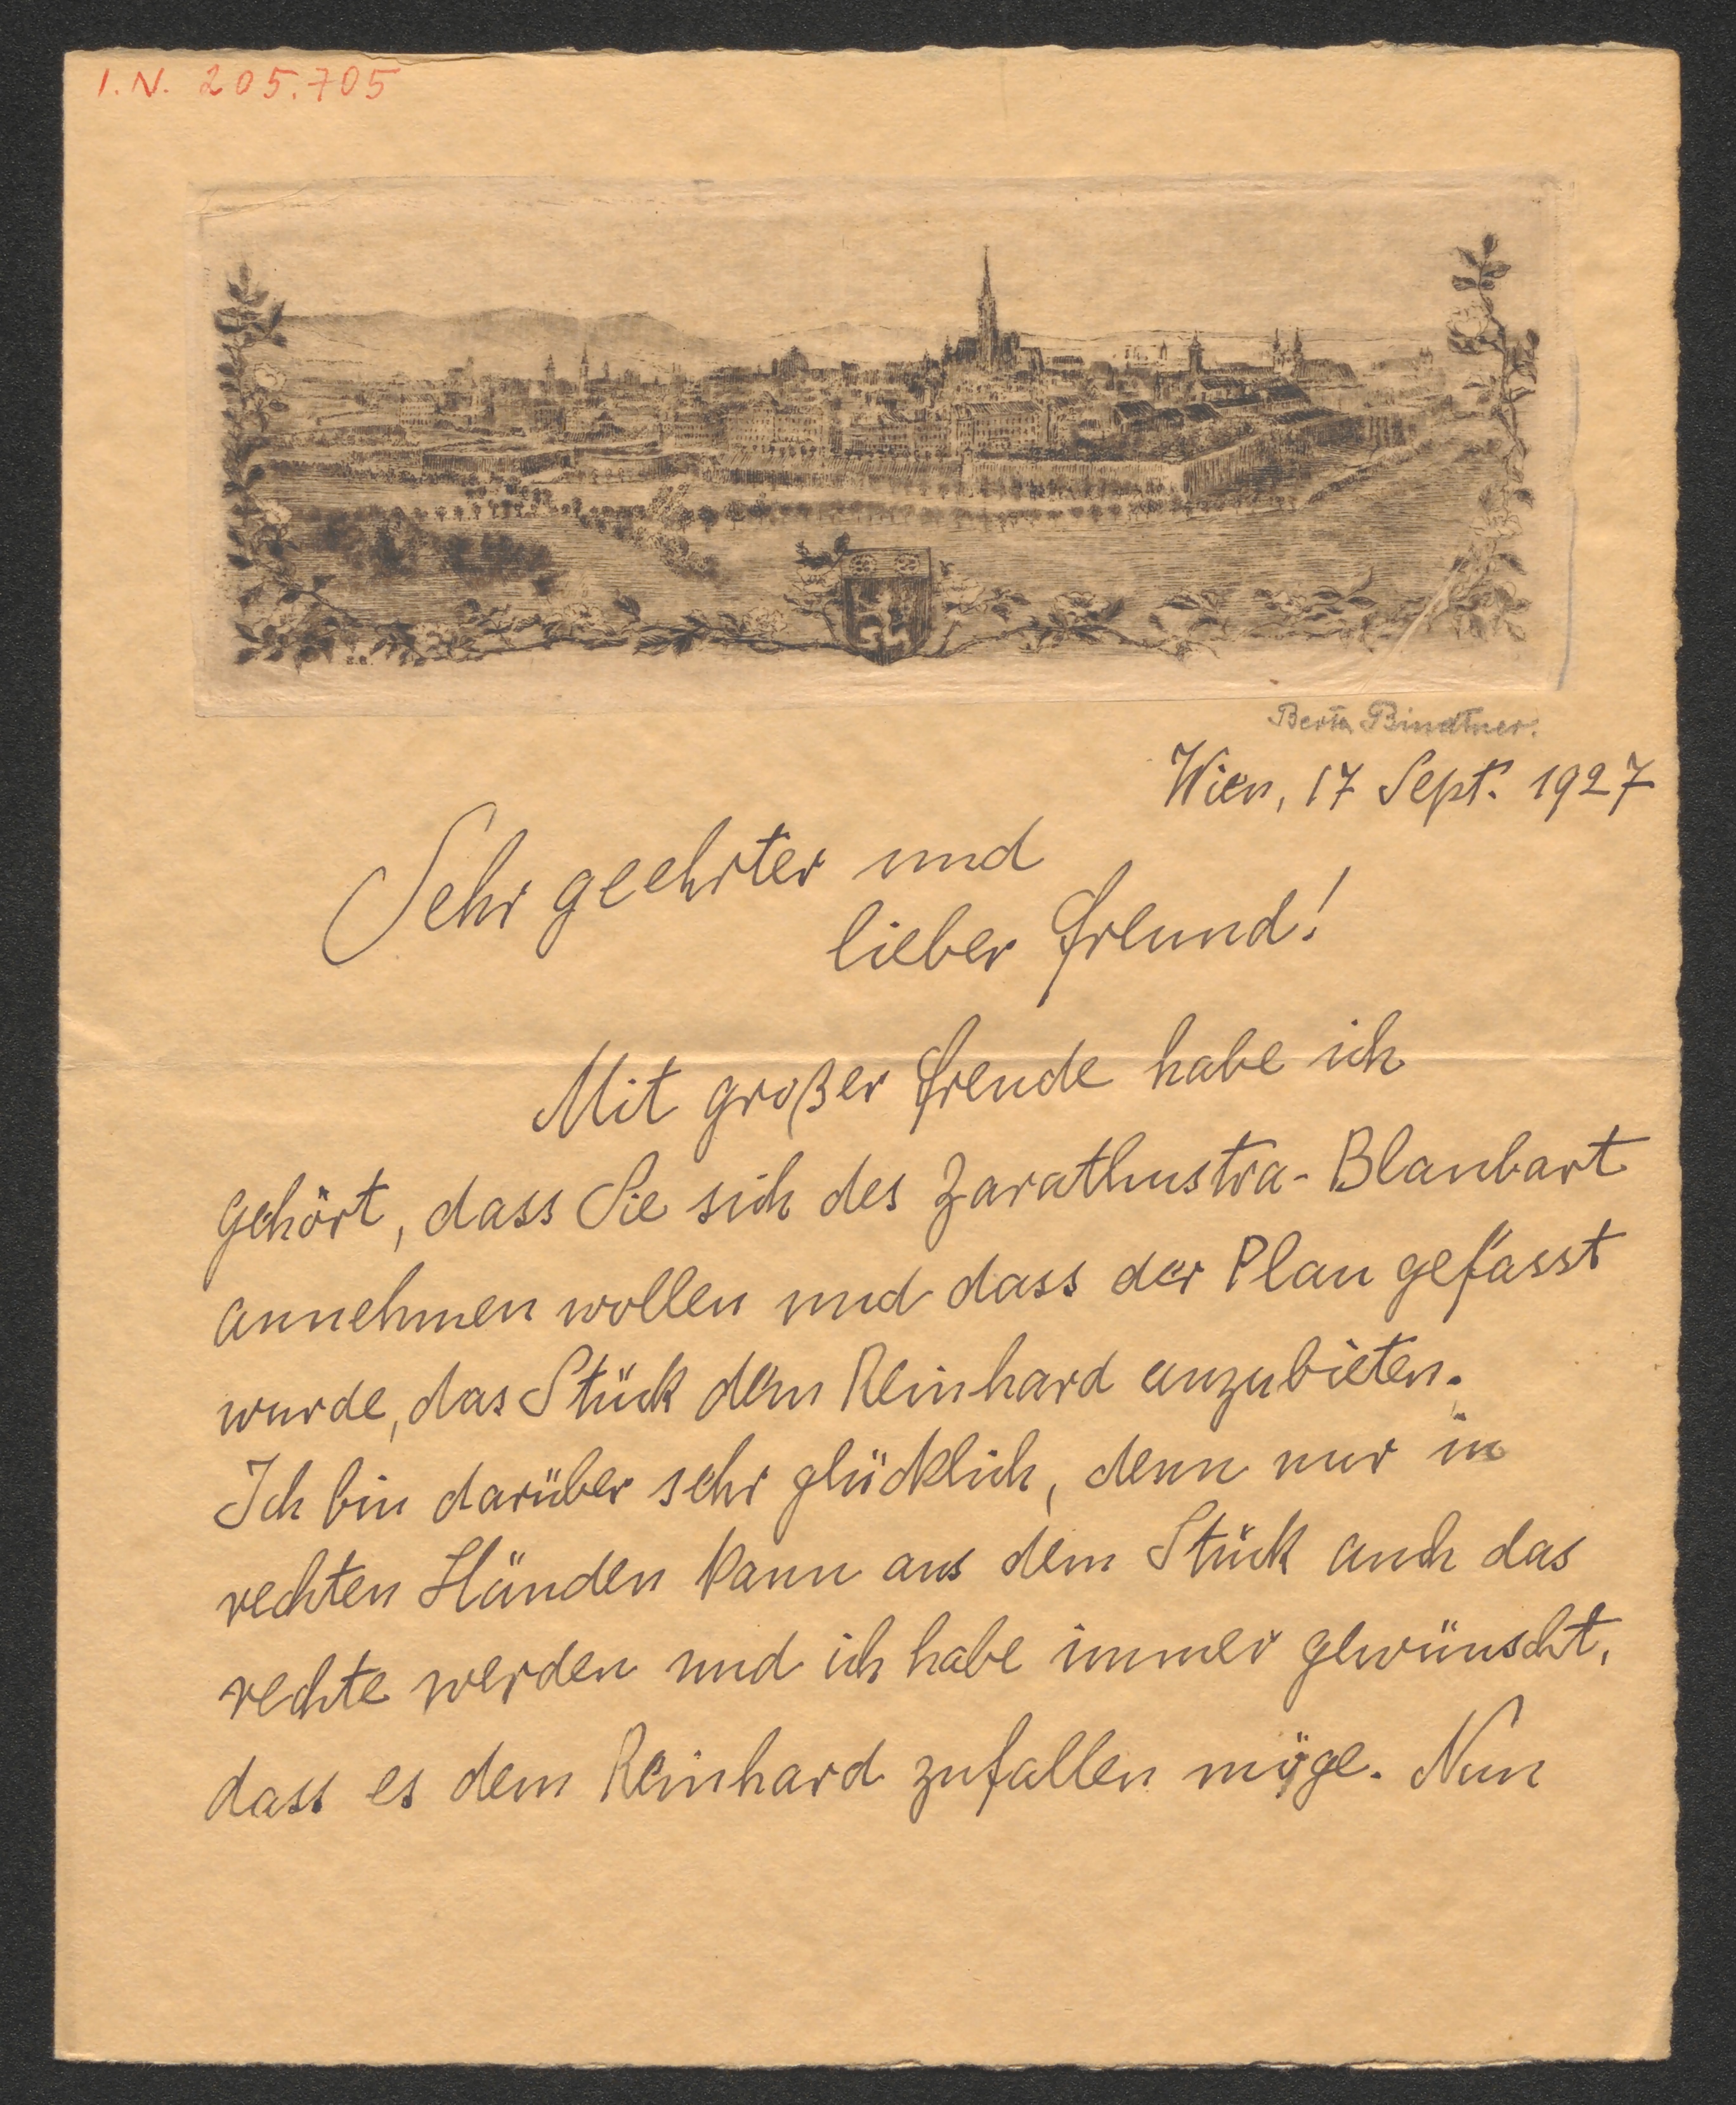 I.N. 205.705
Berta Bindtner.
Wien, 17 Sept. 1927
Sehr geehrter und
lieber Freund!
Mit großer Freude habe ich
gehört, dass Sie sich des Zarathustra-Blaubart
annehmen wollen und dass der Plan gefasst
wurde, das Stück dem Reinhard anzubieten.
Ich bin darüber sehr glücklich, denn nur in
rechten Händen kann aus dem Stück auch das
rechte werden und ich habe immer gewünscht,
dass es dem Reinhard zufallen möge. Nun